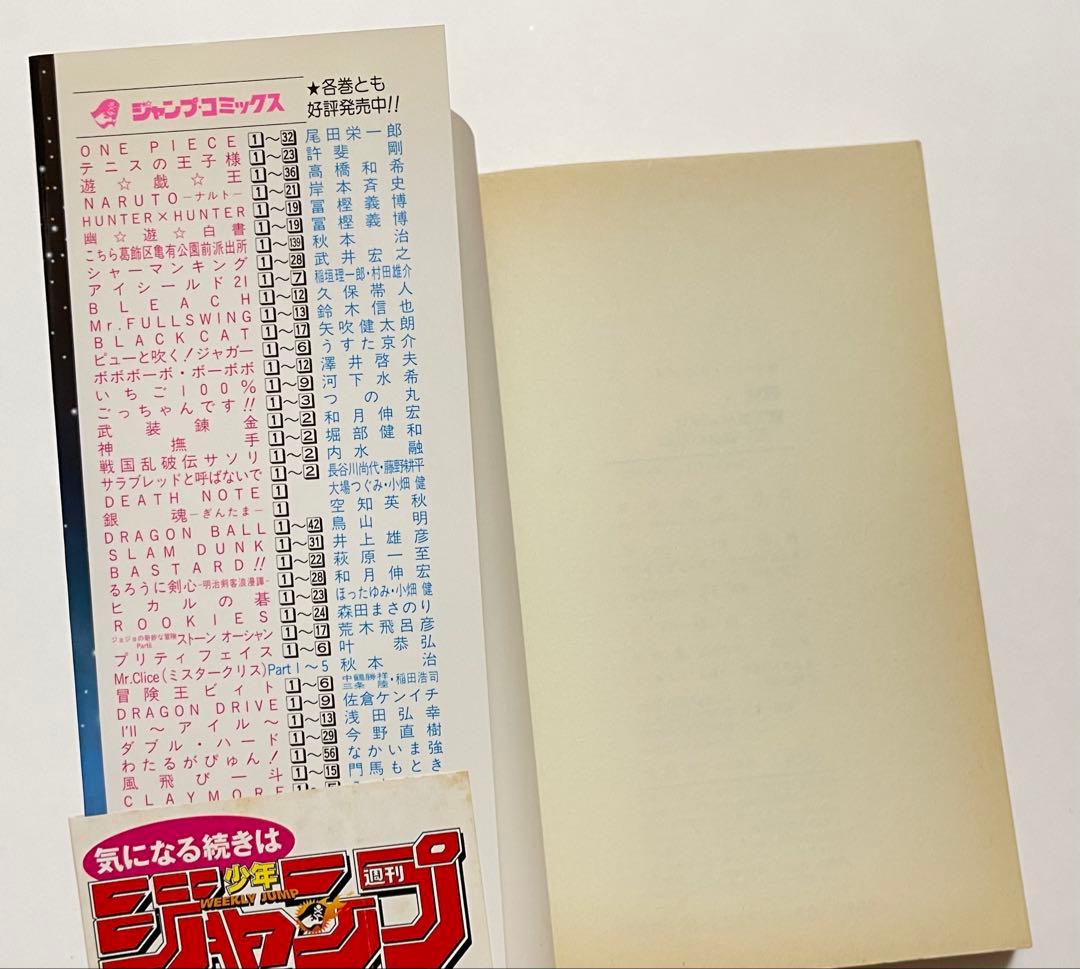 ジャンプ・コミックス
★各巻とも
好評発売中!!
ONE PIECE 1〜32 尾田栄一郎
テニスの王子様 1〜23 許斐 剛
遊☆戯☆王 1〜36 高橋和希
NARUTO―ナルト― 1〜21 岸本斉史
HUNTER×HUNTER 1〜19 冨樫義博
幽☆遊☆白書 1〜19 冨樫義博
こちら葛飾区亀有公園前派出所 1〜139 秋本 治
シャーマンキング 1〜28 武井宏之
アイシールド21 1〜7 稲垣理一郎・村田雄介
BLEACH 1〜12 久保帯人
Mr.FULLSWING 1〜13 鈴木信也
BLACK CAT 1〜17 矢吹健太朗
ピューと吹く!ジャガー 1〜6 うすた京介
ボボボーボ・ボーボボ 1〜12 澤井啓夫
いちご100% 1〜9 河下水希
ごっちゃんです!! 1〜3 つの丸
武装錬金 1〜2 和月伸宏
神撫手 1〜2 堀部健和
戦国乱破伝サソリ 1〜2 内水 融
サラブレッドと呼ばないで 1〜2 長谷川尚代・藤野耕平
DEATH NOTE 1 大場つぐみ・小畑 健
銀魂―ぎんたま― 1 空知英秋
DRAGON BALL 1〜42 鳥山 明
SLAM DUNK 1〜31 井上雄彦
BASTARD!! 1〜22 萩原一至
るろうに剣心-明治剣客浪漫譚- 1〜28 和月伸宏
ヒカルの碁 1〜23 ほったゆみ・小畑 健
ROOKIES 1〜24 森田まさのり
ジョジョの奇妙な冒険 Part6 ストーン オーシャン 1〜17 荒木飛呂彦
プリティフェイス 1〜6 叶 恭弘
Mr.Clice(ミスタークリス) Part 1〜5 秋本 治
冒険王ビィト 1〜6 中鶴勝祥 三条 陸・稲田浩司
DRAGON DRIVE 1〜9 佐倉ケンイチ
I'll 〜アイル〜 1〜13 浅田弘幸
ダブル・ハード 1〜29 今野直樹
わたるがぴゅん! 1〜56 なかいま強
風飛び一斗 1〜15 門馬もとき
CLAYMORE
気になる続きは
少年
週刊
WEEKLY JUMP
ジャンプ